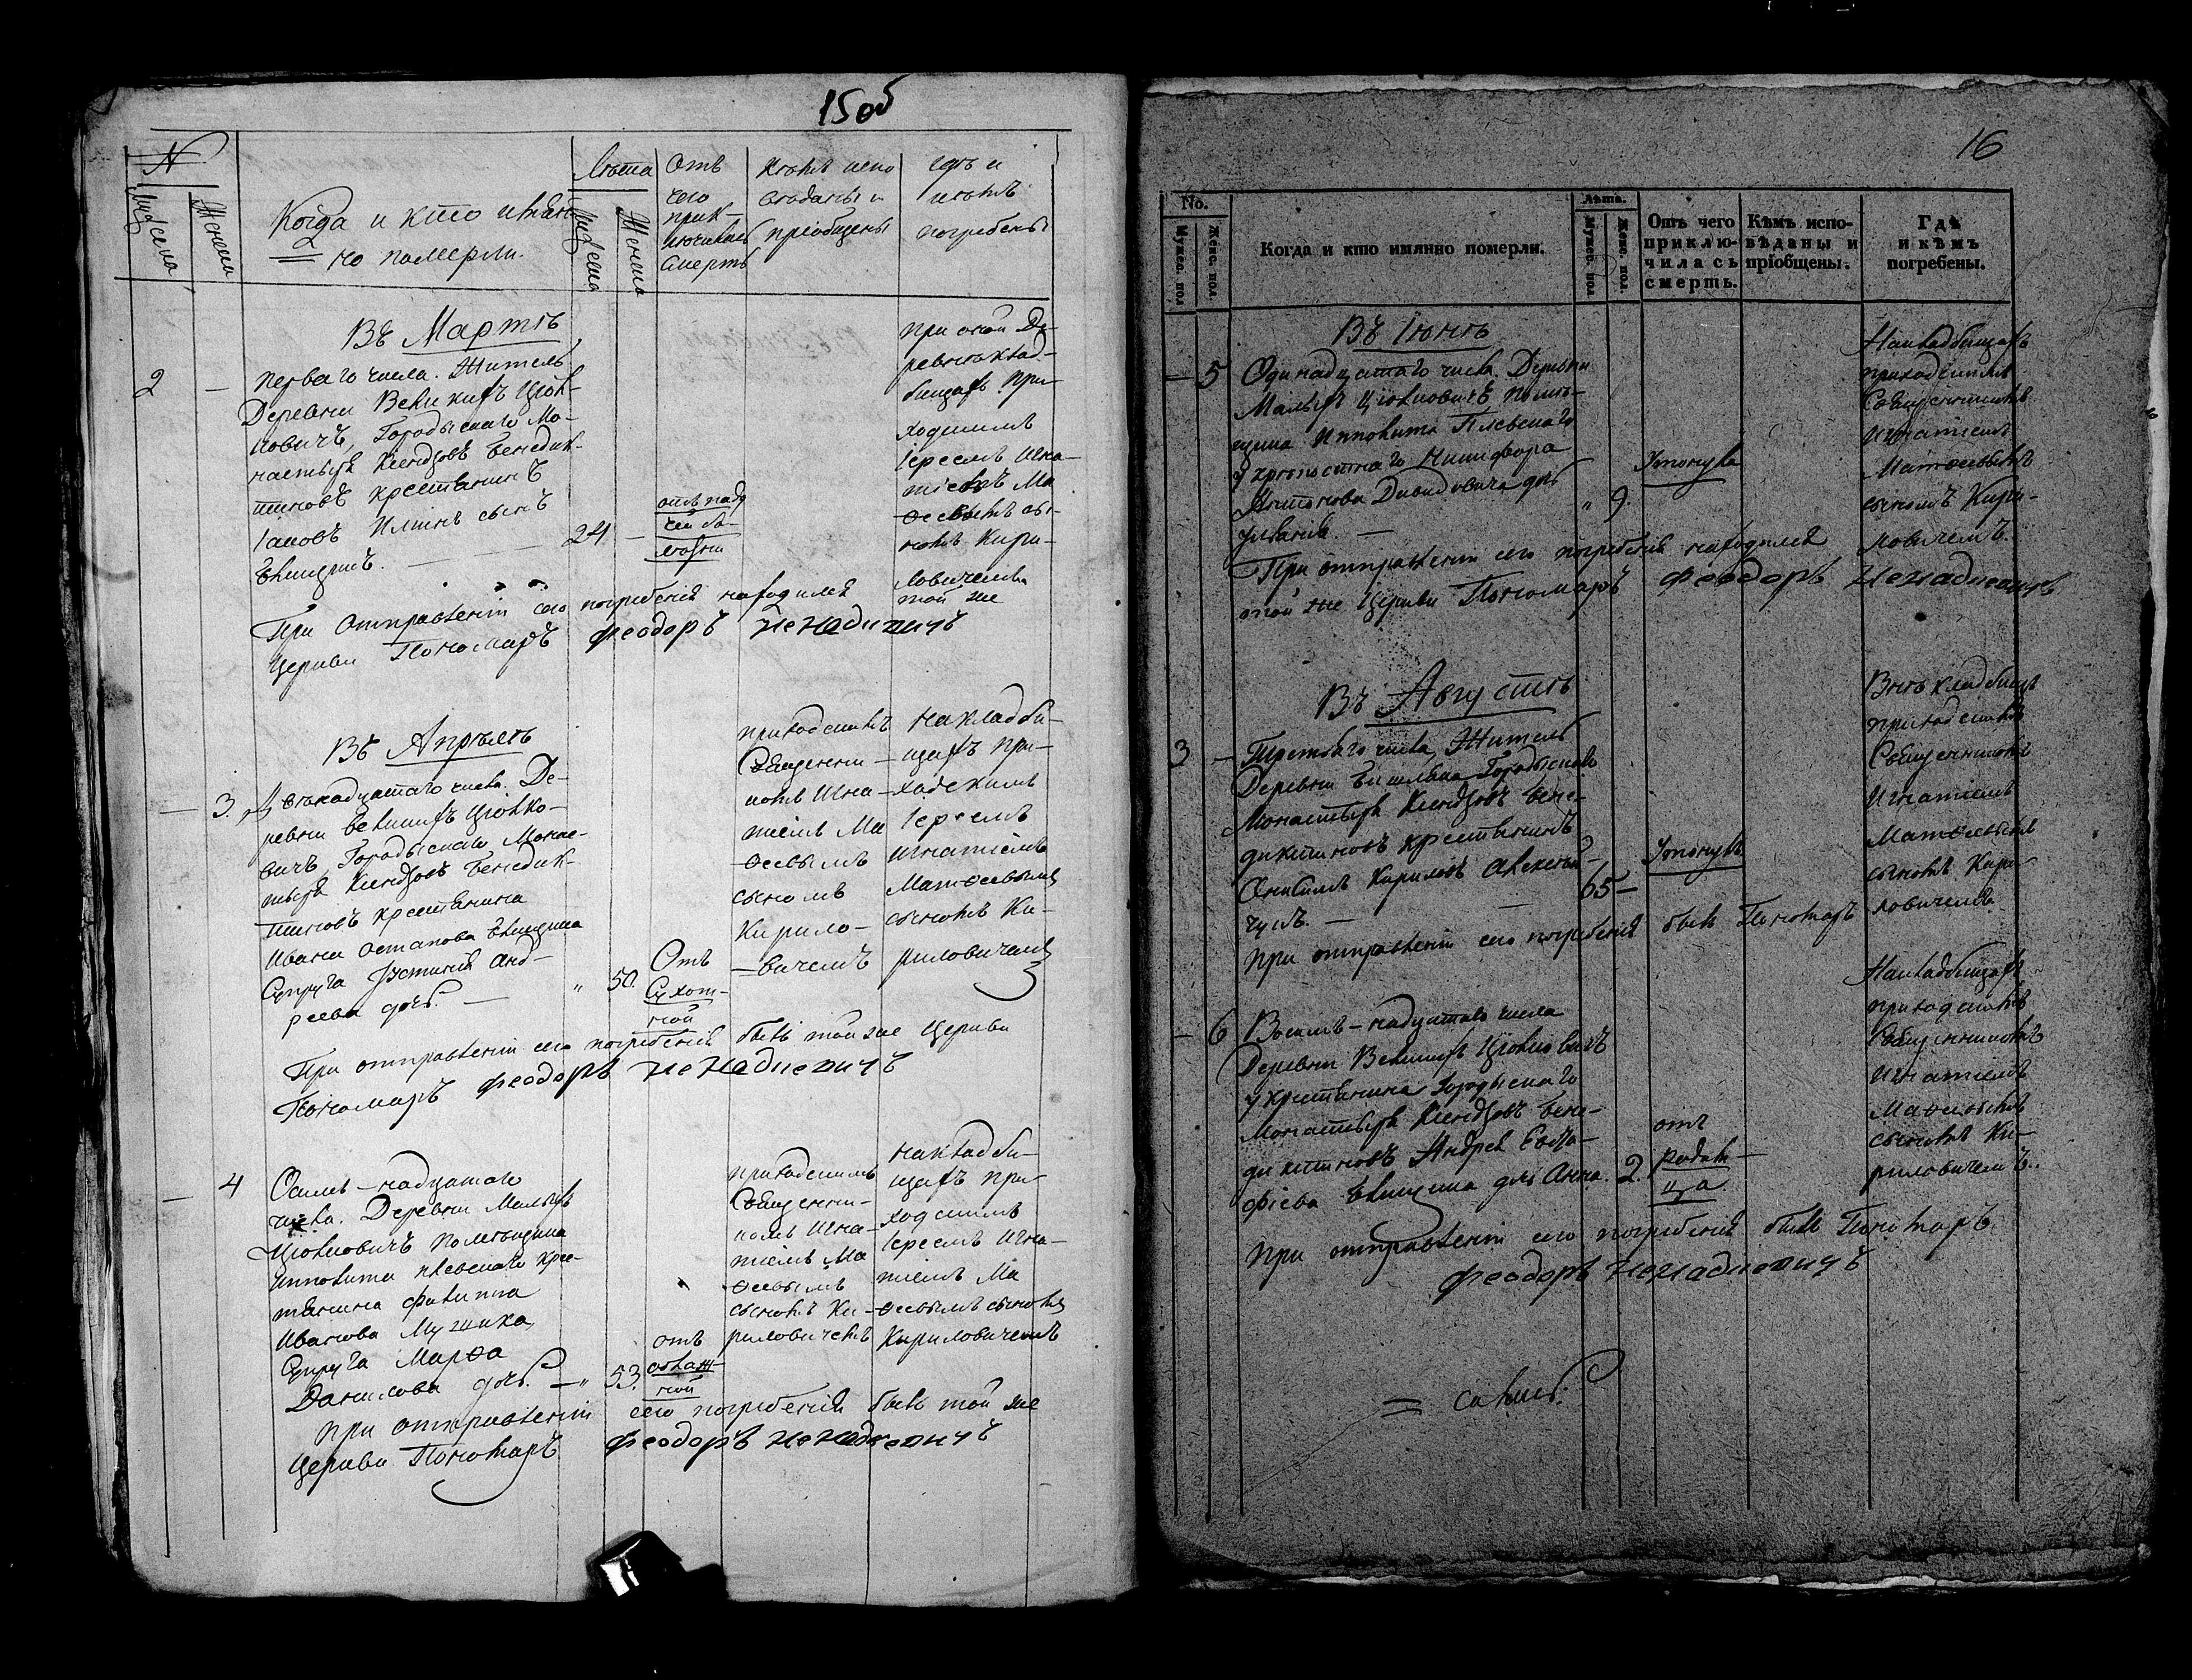 15об
N
Мужеска
Женска
Когда и кто имян-
но померли.
Лѣта
Мужеска
Женска
Отъ
чего
прик-
лючилась
Смерть
Кѣмъ испо
вѣданы и
пріобщены
гдѣ и
кѣмъ
погребены
Въ Мартѣ
2 —
перваго числа. Житель
Деревни Великихъ Цѣлк-
новичъ, Городыскаго Мо-
настыря Ксендзовъ Бенедик-
тиновъ крестьянинъ
Іаковъ сынъ
24 —
отъ паду
чей бо-
лѣзни
при оной Де-
ревнѣ клад-
бищахъ при-
ходскимъ
Іереемъ Игна-
тіемъ Ма
ѳеевымъ сы-
номъ Кири-
ловичемъ
При Отправленіи сего погребенія находился той же
Церкви Пономаръ Феодоръ Ненадкевичъ
Въ Апрѣлѣ
— 3.
Двенадцатаго числа. Де-
ревни Великихъ Цѣлко-
вичъ Городыскаго Монас-
тыря Ксендзовъ Бенедик-
тиновъ крестьянина
Ивана Остапова
Супруга Юстинія Анд-
реева дочь. —
" 50.
Отъ
Сухот-
ной
приходскимъ
Священни-
комъ Игна-
тіемъ Ма
ѳеевымъ
сыномъ
Кирило-
вичемъ
На кладби-
щахъ при-
ходскимъ
Іереемъ
Игнатіемъ
Матѳеевымъ
сыномъ Ки-
риловичемъ
При отправленіи сего погребенія былъ той же Церкви
Пономаръ Феодоръ Ненадкевичъ
— 4
Осмъ-надцатаго
числа. Деревни Малыхъ
Цѣлковичъ помѣщика
Ипполита Плевскаго крес-
тянина Филиппа
Иванова Мужика
Супруга Марѳа
Данилова дочь. —
" 53.
отъ
ной
приходскимъ
Священни-
комъ Игна-
тіемъ Ма
ѳеевымъ
сыномъ Ки-
риловичемъ
на кладби-
щахъ при-
ходскимъ
Іереемъ Игна-
тіемъ Ма
ѳеевымъ сыномъ
Кириловичемъ
при отправленіи сего погребенія былъ той же
Церкви Пономаръ Феодоръ Ненадкевичъ
16
No.
Мужес. пол
Женс. пол.
Когда и кто имянно померли.
Лѣта.
Мужес. пол
Женс. пол.
Отъ чего
приклю-
чилась
смерть.
Кѣмъ испо-
вѣданы и
пріобщены.
Гдѣ
и кѣмъ
погребены.
Въ Іюнѣ
— 5
Одинадцатаго числа. Деревни
Малыхъ Цѣлковичъ помѣ-
щика Ипполита Плевскаго
у крѣпостнаго Никифора
Антонова Давидовича дочь
" 9.
Утонула
На кладбищахъ
приходскимъ
Священникомъ
Игнатіемъ
Матѳеевымъ
сыномъ Кири-
ловичемъ.
При отправленіи сего погребенія находился
той же Церкви Пономаръ Феодоръ Ненадкевичъ
Въ Августѣ
3 —
Третьяго числа, Житель
Деревни Городыскаго
Монастыря Ксендзовъ Бене-
диктиновъ крестьянинъ
Онисимъ Кириловъ Алексей-
чукъ. —
65 —
Утонулъ
Внѣ кладбищъ
приходскимъ
Священникомъ
Игнатіемъ
Матѳеевымъ
сыномъ Кири-
ловичемъ
при отправленіи сего погребенія былъ Пономаръ
— 6
Восимъ-надцатаго числа
Деревни Великихъ Цѣлковичъ
у крестьянина Городыскаго
Монастыря Ксендзовъ Бене-
диктиновъ Андрея Евста-
фіева дочь Анна.
2.
отъ
родим-
ца
На кладбищахъ
приходскимъ
Священникомъ
Игнатіемъ
Маѳеевымъ
сыномъ Ки-
риловичемъ.
при отправленіи сего погребенія былъ Пономаръ.
Феодоръ Ненадкевичъ